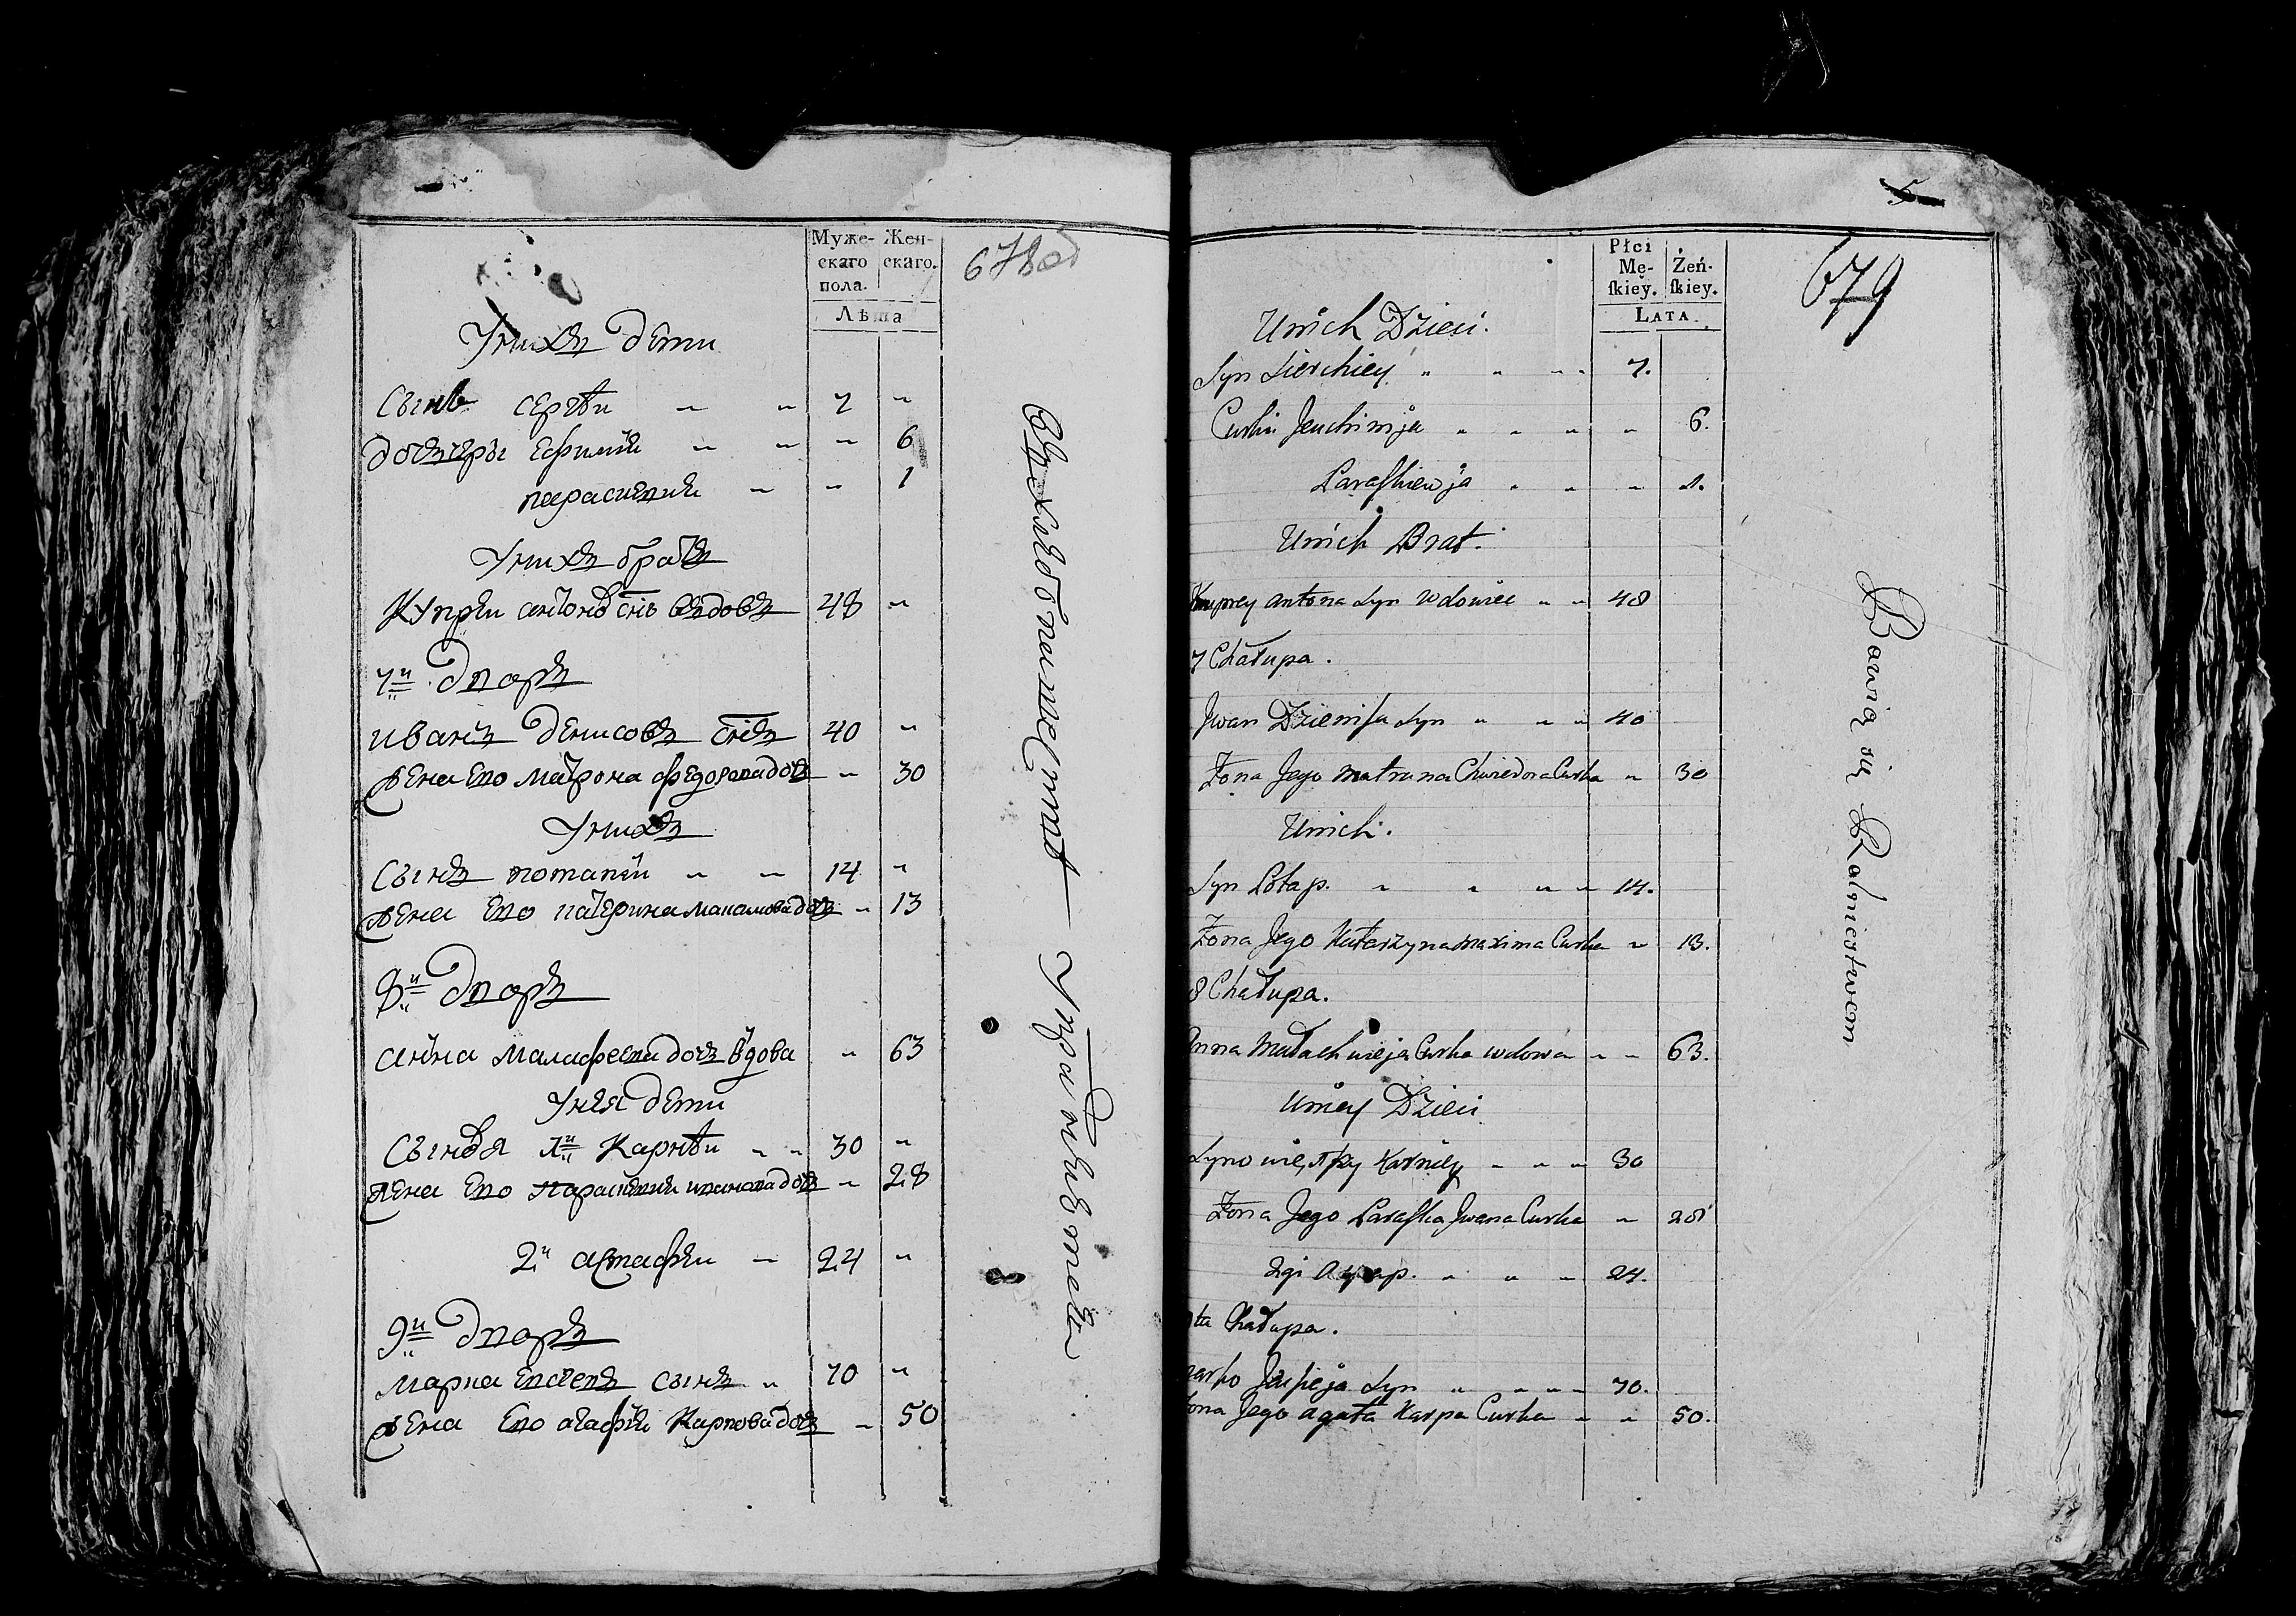 Муже-
скаго
пола.
Жен-
скаго.
Лѣта
678об
У них дети
Сынъ Сергѣи " " 7 "
дочери Ефимия " " " 6
парасковия " " 1
У них братъ
Купреи антонов снъ вдовъ 48 "
7й двор
иванъ денисовъ снъ 40 "
жена Его матрона федорова доч " 30
У нихъ
Сынъ потапии " " 14 "
жена Его катерина макамова доч " 13
8й двор
анна малафеева доч вдова " 63
У нея дети
Сыновя 1й Карнѣи " " 30 "
жена Его Парасковия иванова доч " 28
2й астафеи " 24 "
9й двор
марка Евсеевъ сынъ " 70 "
жена Его агафия Карпова доч " 50
въ хлебопашестве упражняютца
5
Płci
Mę-
skiey.
Żeń-
skiey.
LATA.
679
Unich Dzieci.
Syn Sierchiey " " " " 7.
Curki Jeuchimja " " " " 6.
Paraskiewja " " " 1.
Unich Brat.
Kuprey Antona Syn Wdowiec " " 48
7 Chałupa.
Jwan Dzienisa Syn " " " 40
Żona Jego Matruna Chwiedora Curka " 30
Unich.
Syn Potap. " " " " 14.
Żona Jego Katarzyna Maxima Curka " 13.
8 Chałupa.
Anna Małachwieja Curka wdowa " " 63.
Uniey Dzieci
Synowie, 1szy Karniey " " " 30
Żona Jego Paraska Jwana Curka " 28
2gi " " " 24.
9ta Chałupa.
Marko Jeusieja Syn " " " " 70.
Żona Jego Agata Karpa Curka " " 50.
Bawią się Rolnictwem